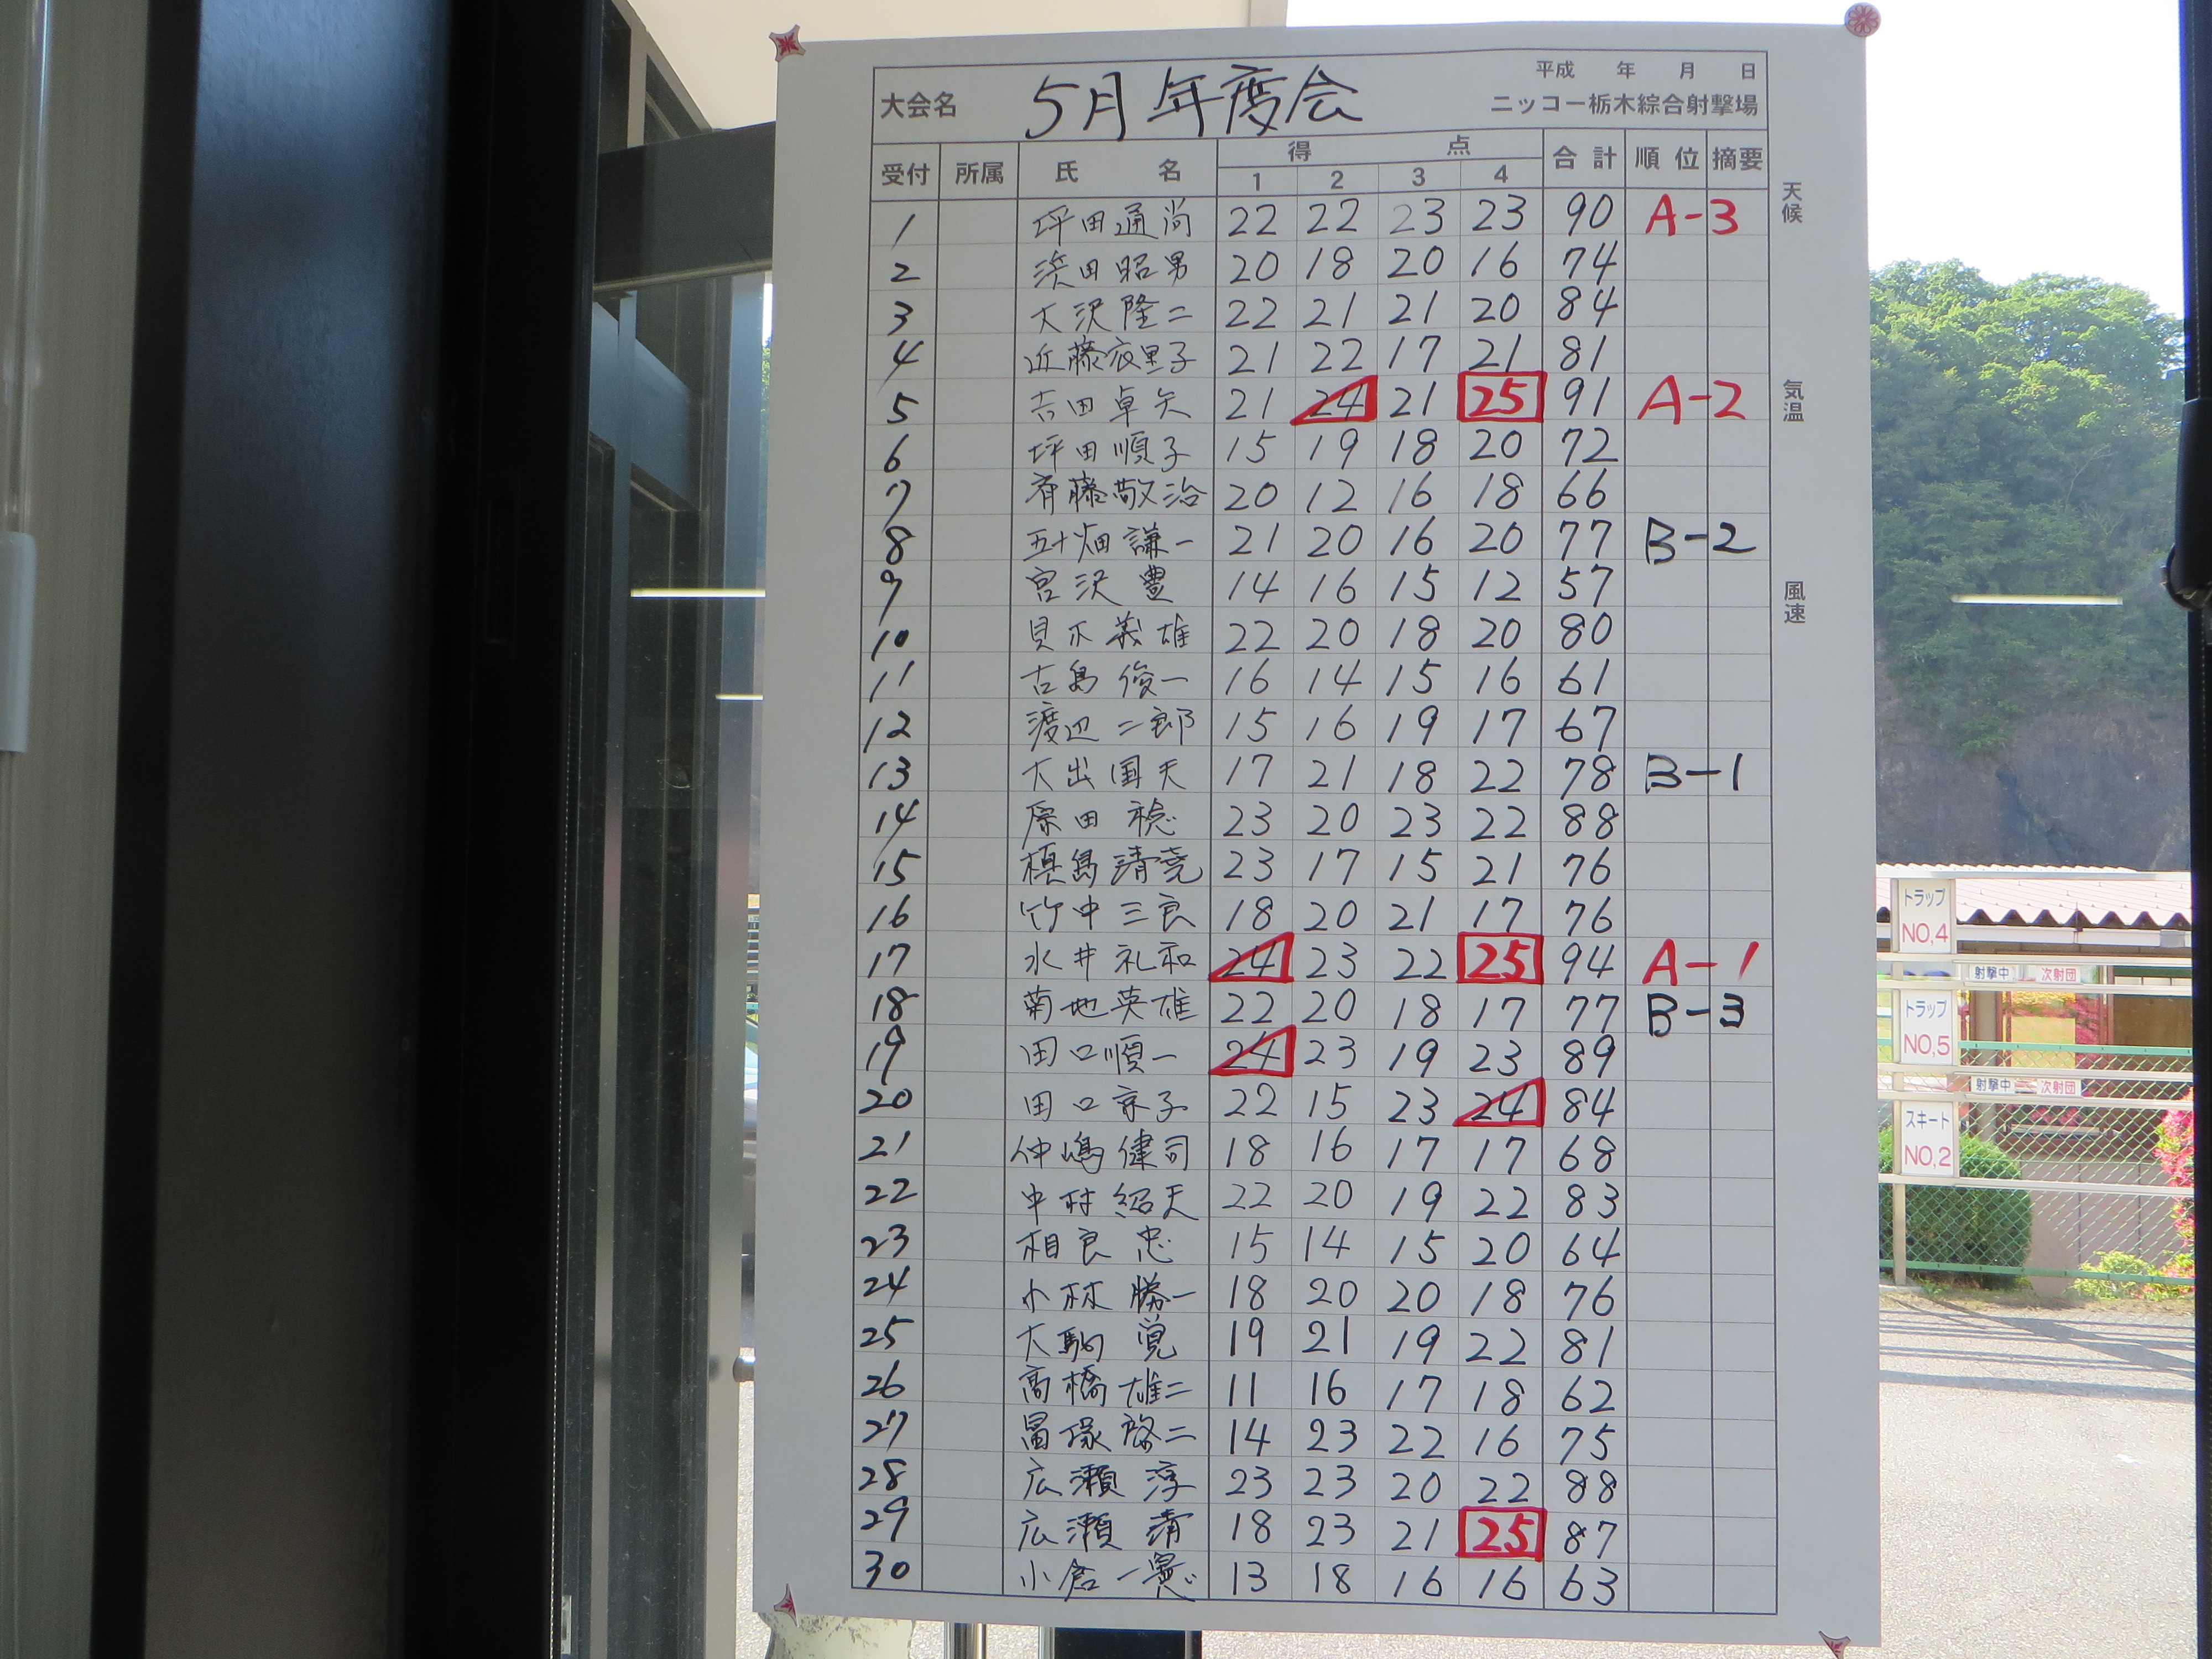 平成 年 月 日
大会名 5月年度会 ニッコー栃木綜合射撃場
受付 所属 氏名 得点 合計 順位 摘要
1 2 3 4
1 坪田通尚 22 22 23 23 90 A-3
2 浜田昭男 20 18 20 16 74
3 大沢隆二 22 21 21 20 84
4 近藤衣里子 21 22 17 21 81
5 吉田卓矢 21 24 21 25 91 A-2
6 坪田順子 15 19 18 20 72
7 斉藤敬治 20 12 16 18 66
8 五十畑謙一 21 20 16 20 77 B-2
9 宮沢豊 14 16 15 12 57
10 貝木義雄 22 20 18 20 80
11 古島俊一 16 14 15 16 61
12 渡辺二郎 15 16 19 17 67
13 大出国夫 17 21 18 22 78 B-1
14 原田稔 23 20 23 22 88
15 槙島清尭 23 17 15 21 76
16 竹中三良 18 20 21 17 76
17 水井礼和 24 23 22 25 94 A-1
18 菊地英雄 22 20 18 17 77 B-3
19 田口順一 24 23 19 23 89
20 田口京子 22 15 23 24 84
21 仲嶋健司 18 16 17 17 68
22 中村紹夫 22 20 19 22 83
23 相良忠 15 14 15 20 64
24 小林勝一 18 20 20 18 76
25 大駒覚 19 21 19 22 81
26 高橋雄二 11 16 17 18 62
27 塚啓二 14 23 22 16 75
28 広瀬淳 23 23 20 22 88
29 広瀬清 18 23 21 25 87
30 小倉一憲 13 18 16 16 63
天候
気温
風速
トラップ
NO,4
射撃中 次射団
トラップ
NO,5
射撃中 次射団
スキート
NO,2